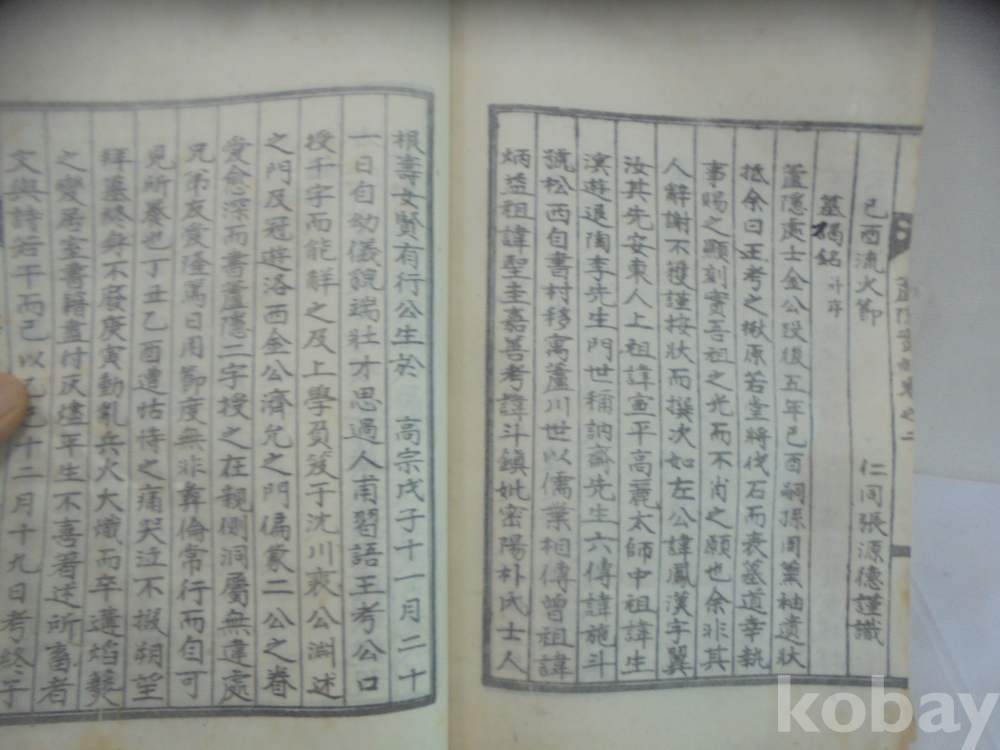 己酉流火節 仁同張源德謹識
墓碣銘 并序
蘆隱處士金公歿後五年己酉嗣孫周薰袖遺狀
抵余曰王考之楸原若堂將伐石而表墓道幸執
事賜之顯刻實吾祖之光而不肖之願也余非其
人辭謝不獲謹按狀而撰次如左公諱鳳漢字翼
汝其先安東人上祖諱宣平高麗太師中祖諱生
溟遊退陶李先生門世稱訥齋先生六傳諱施斗
號松西自書村移寓蘆川世以儒業相傳曾祖諱
炳益祖諱聖圭嘉善考諱斗鎭妣密陽朴氏士人
根壽文賢有行公生於 高宗戊子十一月二十
一日自幼儀貌端壯才思過人甫習語王考公口
授千字而能解之及上學負笈于沈川裵公淵述
之門及冠遊洛西金公濟允之門偏蒙二公之眷
愛愈深而書蘆隱二字授之在親側洞屬無違處
兄弟友愛隆篤日用節度無非彛倫常行而自可
見所養也丁丑乙酉遭怙恃之痛哭泣不掇朔望
拜墓終年不廢庚寅動亂兵火大熾而卒遘焰襲
之變居室書籍盡付灰燼平生不喜著述所畜者
文與詩若干而已以乙巳十二月十九日考終于
kobay